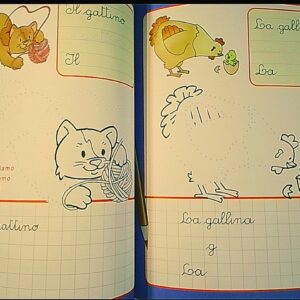 Il gattino
Il
iamo
mo
attino
La gall
La
La gallina
g
La